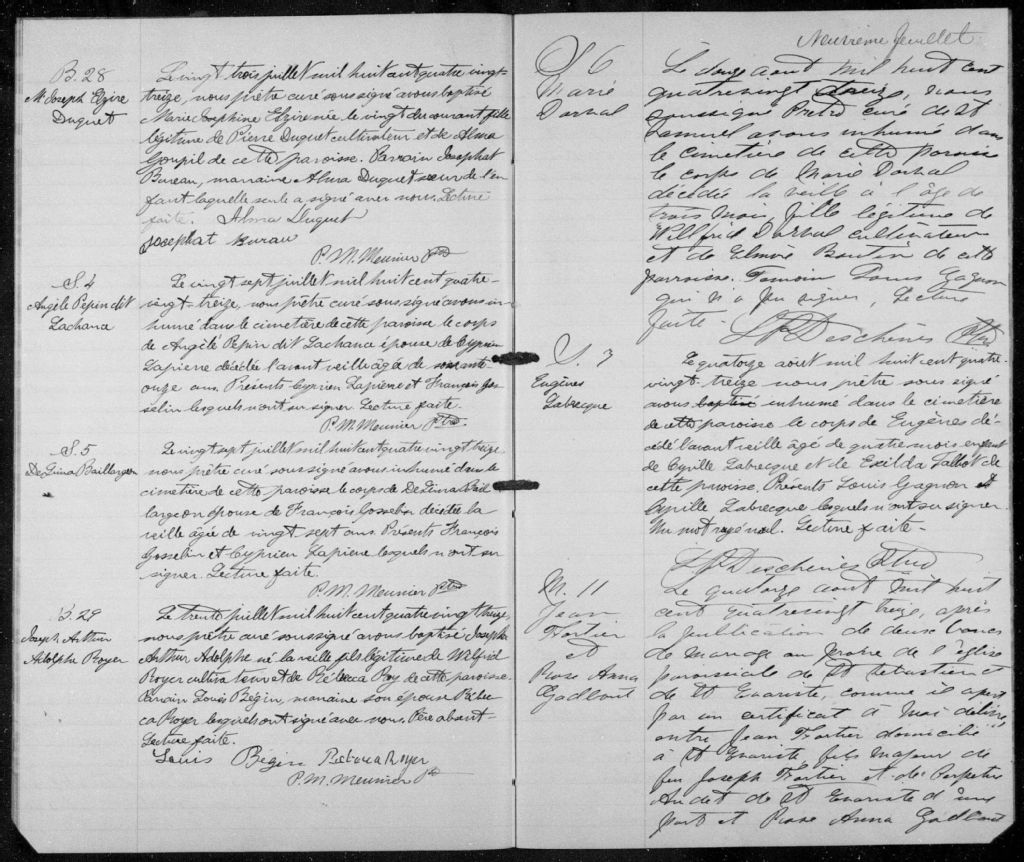 B. 28
M. Joseph Elzire
Duquet
Le vingt trois juillet mil huit cent quatre vingt-
treize, nous prêtre curé soussigné avons baptisé
Marie Josephine Elzirenée le vingt du courant fille
légitime de Pierre Duquet cultivateur et de Alma
Goupil de cette paroisse. Parrain Josaphat
Bureau, marraine Alma Duquet sœur de l'en
fant laquelle seule a signé avec nous. Lecture
faite. Alma Duquet
Josephat Burau
P. M. Meunier Ptre
S. 4
Angèle Pepin dit
Lachance
Le vingt sept juillet mil huit cent quatre-
vingt-treize, nous prêtre curé soussigné avons in
humé dans le cimetière de cette paroisse le corps
de Angèle Pepin dit Lachance épouse de Cyprien
Lapierre décédée l'avant veille âgée de soixante
onze ans. Présents Cyprien Lapierre et François Gos
selin lesquels n'ont su signer. Lecture faite.
P. M. Meunier Ptre.
S. 5
Delina Baillargeon
Le vingt sept juillet mil huit cent quatre vingt treize
nous prêtre curé soussigné avons inhumé dans le
cimetière de cette paroisse le corps de Delina Bail
largeon épouse de François Gosselin décédée la
veille âgée de vingt sept ans. Présents François
Gosselin et Cyprien Lapierre lesquels n'ont su
signer. Lecture faite.
P. M. Meunier Ptre
B. 29
Joseph Arthur
Adolphe Royer
Le trente juillet mil huit cent quatre vingt treize,
nous prêtre curé soussigné avons baptisé Joseph
Arthur Adolphe né la veille fils légitime de Wilfrid
Royer cultivateur et de Rébecca Roy de cette paroisse.
Parrain Louis Bégin, marraine son épouse Rébec
ca Royer lesquels ont signé avec nous. Père absent-
Lecture faite.
Louis Bégin Rebecca Royer
P. M. Meunier Ptr
Neuvième feuillet.
S 6
Marie
Dorval
Le douze aout mil huit cent
quatrevingt treize, nous
soussigné Prêtre curé de St
Samuel avons inhumé dans
le cimetière de cette paroisse
le corps de Marie Dorval
décédée la veille à l'âge de
trois mois, fille légitime de
Wilfrid Dorval cultivateur
et de Elmire Boutin de cette
paroisse. Temoin Louis Gagnon
qui n'a pu signer, Lecture
faite.
Deschênes Ptre
S. 7
Eugènes
Labrecque
Le quatorze août mil huit cent quatre-
vingt-treize nous prêtre sous signé
avons baptisé inhumé dans le cimetière
de cette paroisse le corps de Eugènes dé-
cédé l'avant veille âgé de quatre mois enfant
de Cyrille Labrecque et de Exilda Talbot de
cette paroisse. Présents Louis Gagnon et
Cyrille Labrecque lesquels n'ont su signer.
Un mot rayé nul. Lecture faite.
Deschênes Ptre
M. 11
Jean
Fortier
et
Rose Anna
Godbout
Le quatorze aout mil huit
cent quatrevingt treize, après
la publication de deux bancs
de mariage au prône de l'église
paroissiale de St Sebastien et
de St Evariste, comme il apert
par un certificat à moi délivré,
entre Jean Fortier domicilié
à St Evariste fils majeur de
feu Joseph Fortier et de Perpetue
Audet de St Evariste d'une
part et Rose Anna Godbout